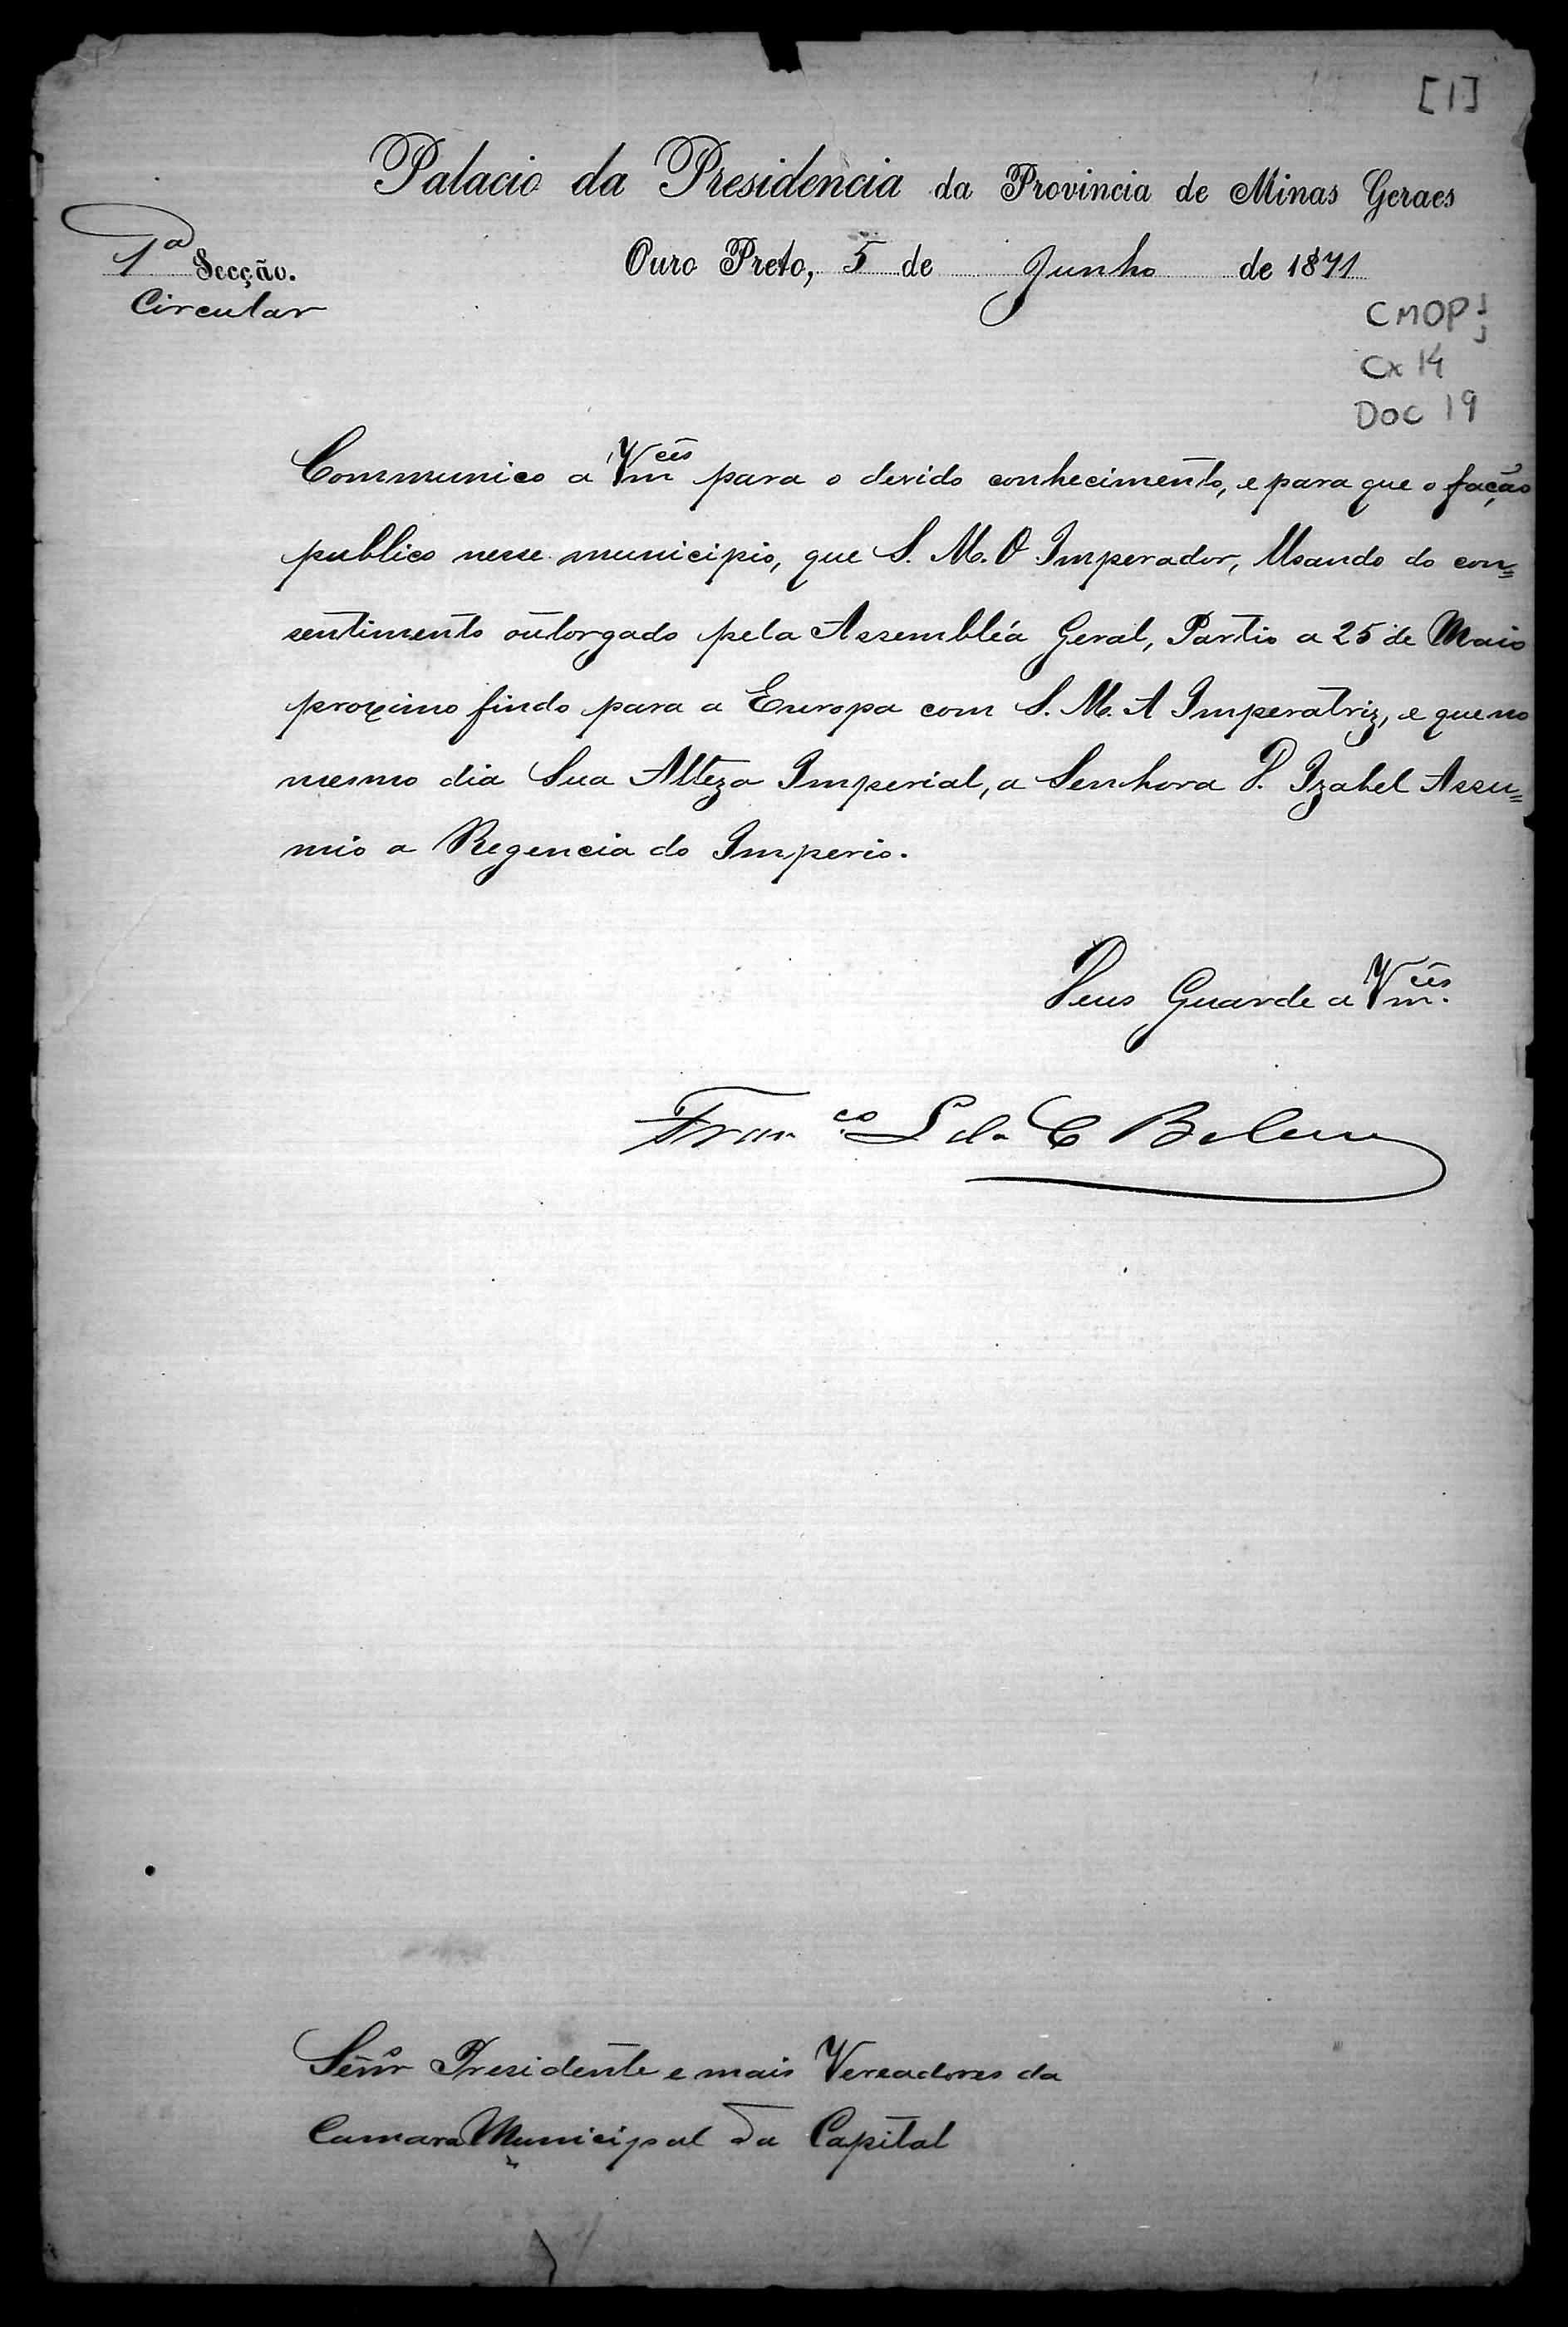 [1]
Palacio da Presidencia da Provincia de Minas Geraes
1ª Secção.
Ouro Preto, 5 de Junho de 1871
Circular
CMOP
Cx 14
DOC 19
Communico a Vm.ces para o devido conhecimento, e para que o fação
publico nesse municipio, que S. M. O Imperador, Usando do con=
sentimento outorgado pela Assembléa Geral, Partio a 25 de Maio
proximo findo para a Europa com S. M. A Imperatriz, e que no
mesmo dia Sua Alteza Imperial, a Senhora D. Izabel Assu=
mio a Regencia do Imperio.
Deus Guarde a Vm.ces
Fran.co L da C Belem
Senrs Presidente e mais Vereadores da
Camara Municipal da Capital